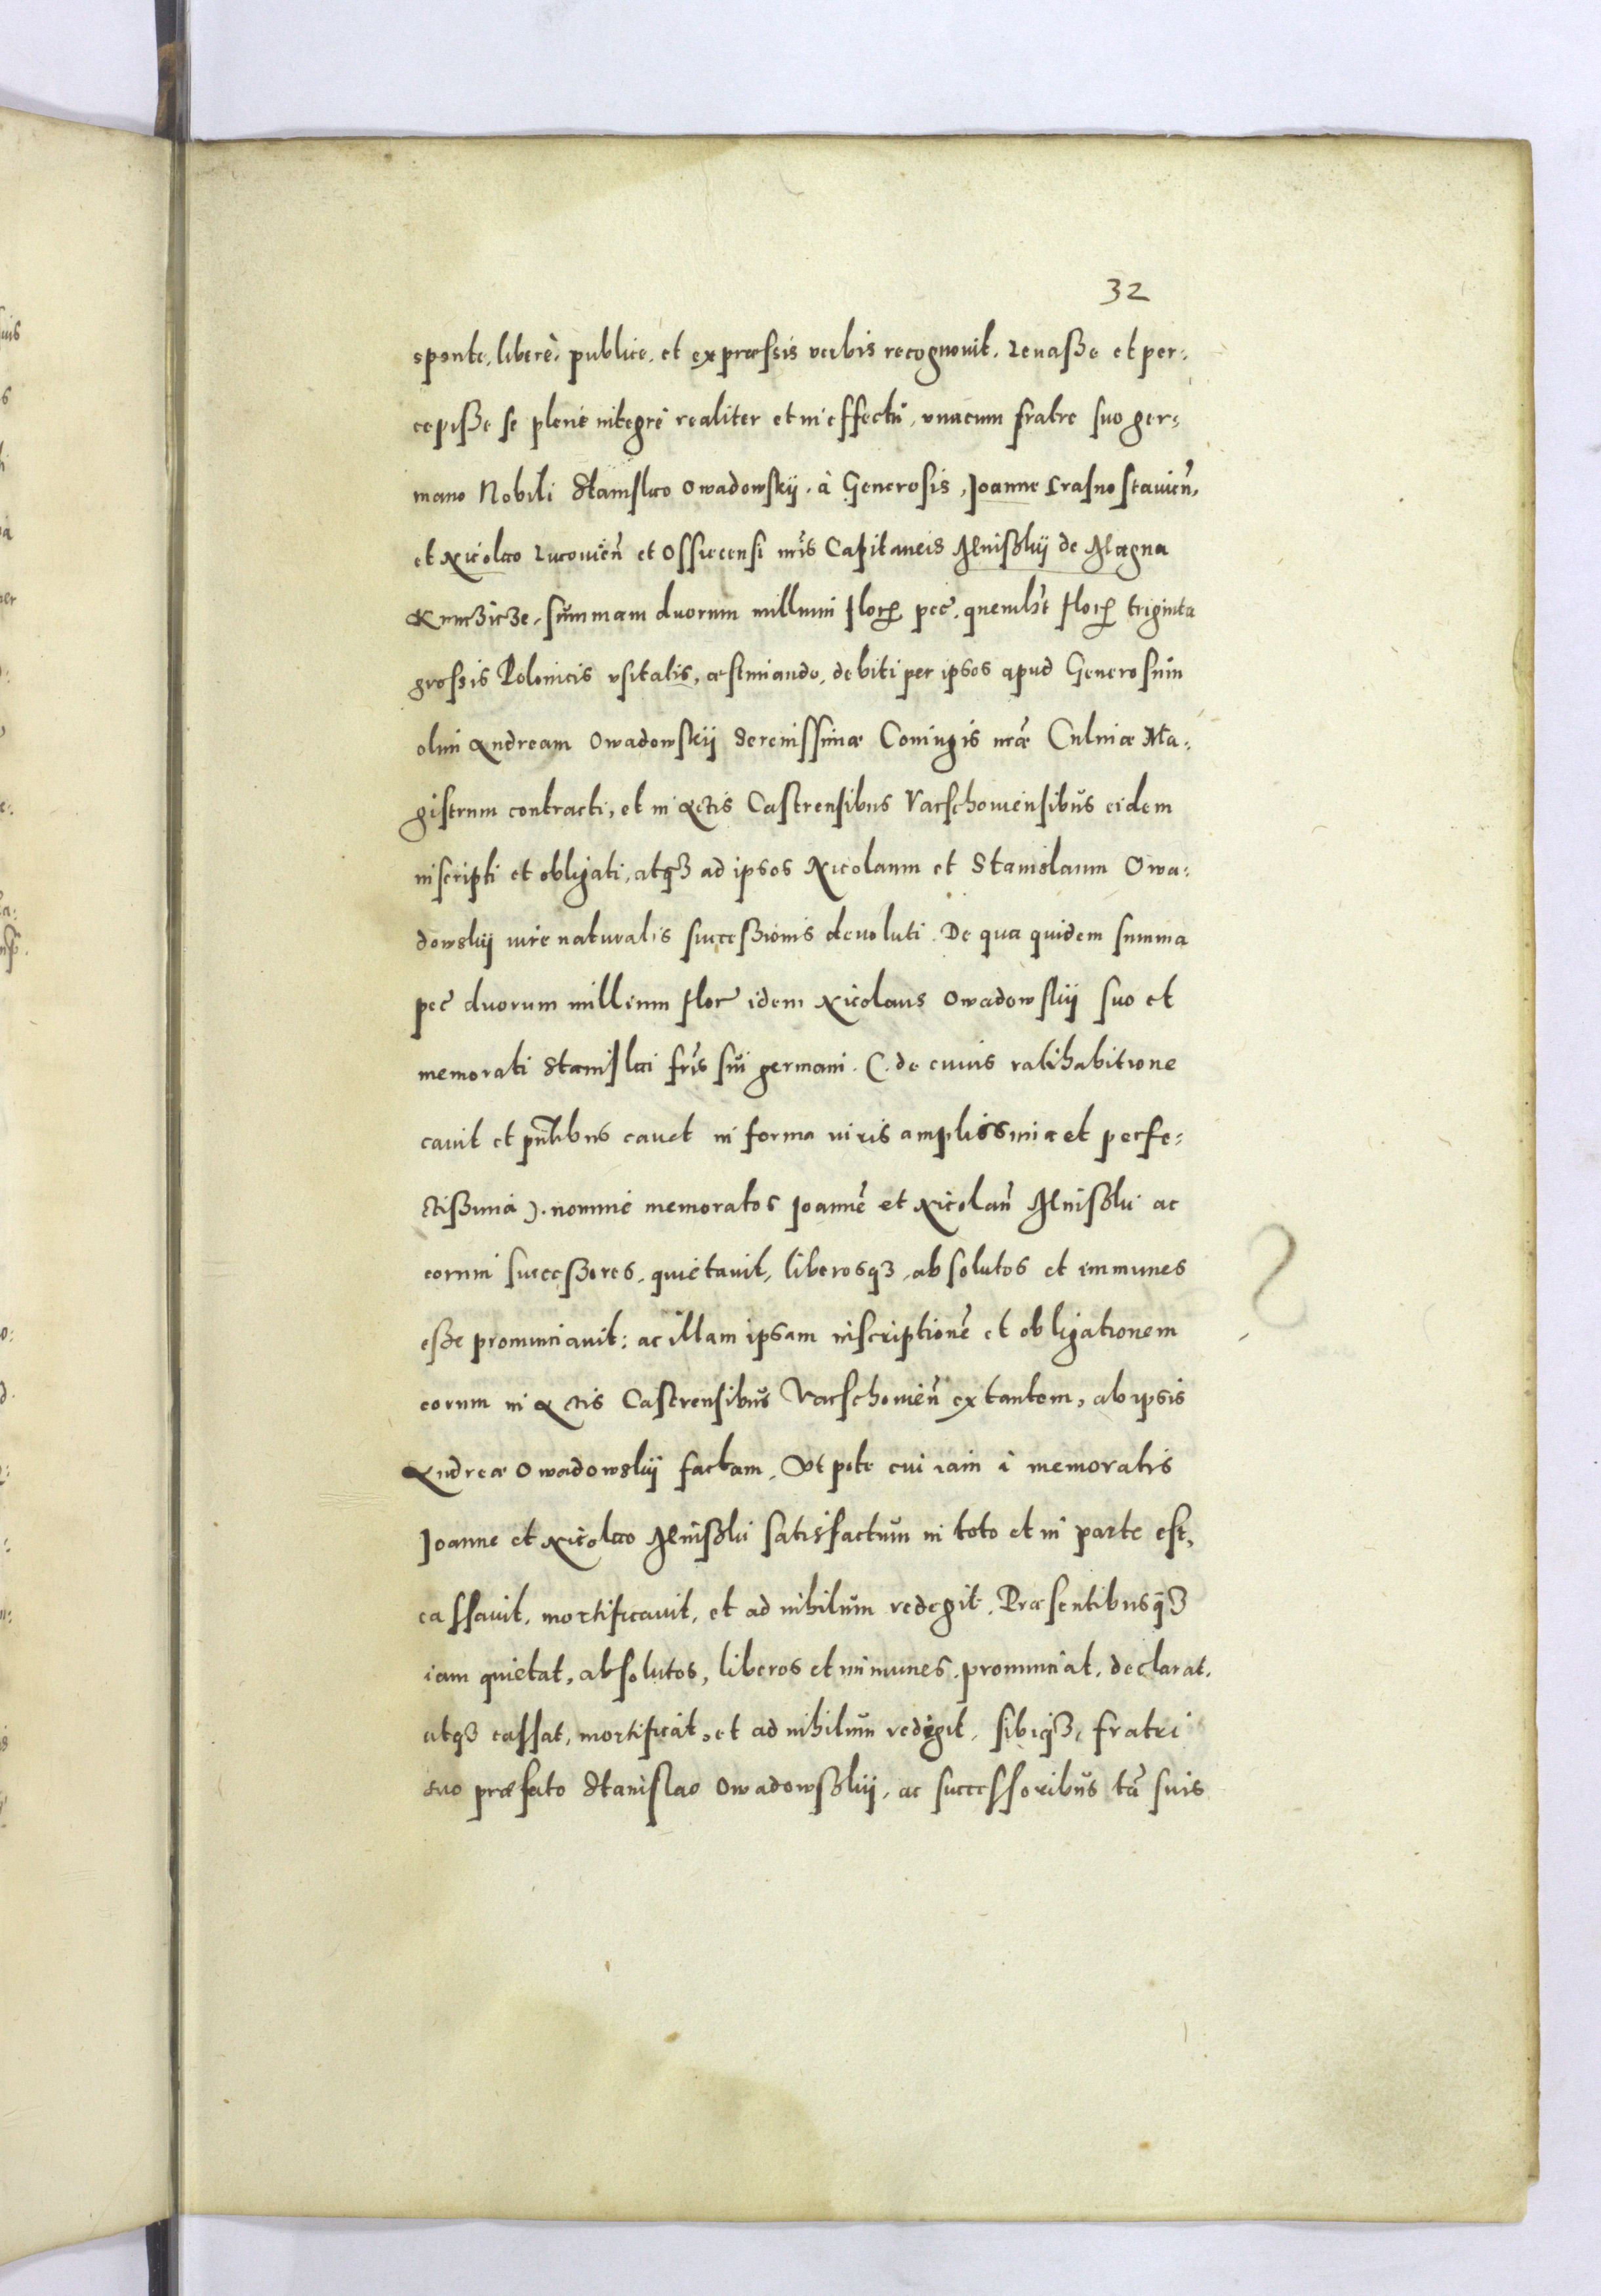 32
sponte, libere, publice, et expræssis verbis recognovit, Levasse et per:
cepisse se plene integre realiter et in effectu, vnacum fratre suo ger:
mano Nobili Stanislao Owadowskij, à Generosis, Joanne Crasnostavien̄,
et Nicolao Lucovien̄ et Ossiecensi nr̄is Capitaneis Mnisskij de Magna
summam duorum millium floꝝ pec̄, quemlibt̄ floꝝ triginta
grossis Polonicis vsitatis, æstimando, debiti per ipsos apud Generosum
olim Andream Owadowskij Serenissimæ Coniugis nr̄æ Culinæ Ma:
gistrum contracti, et in Actis Castrensibus Varschoviensibus eidem
inscripti et obligati, atqꝫ ad ipsos Nicolaum et Stanislaum Owa:
dowskij iure naturalis successionis devoluti. De qua quidem summa
pec̄ duorum millium flor̄ idem Nicolaus Owadowskij suo et
memorati Stanislai fr̄is sui germani. (. de cuius ratihabitione
cavit et pn̄tibus cavet in forma iuris amplissima et perfe:
ctissima ). nomine memoratos Joannē et Nicolaū Mnisski ac
eorum successores, quietavit, liberosqꝫ, absolutos et immunes
esse pronunciavit: ac illam ipsam inscriptionē et obligationem
eorum in Actis Castrensibus Varschovien̄ extantem, ab ipsis
Andreæ Owadowskij factam, Vt pote cui iam à memoratis
Joanne et Nicolao Mnisski satisfactum in toto et in parte est,
cassavit, mortificavit, et ad nihilum redegit, Præsentibusqꝫ
iam quietat, absolutos, liberos et immunes, pronunciat, declarat,
atqꝫ cassat, mortificat, et ad nihilum redigit, sibiqꝫ, fratri
suo præfato Stanislao Owadowsskij, ac successoribus tā suis